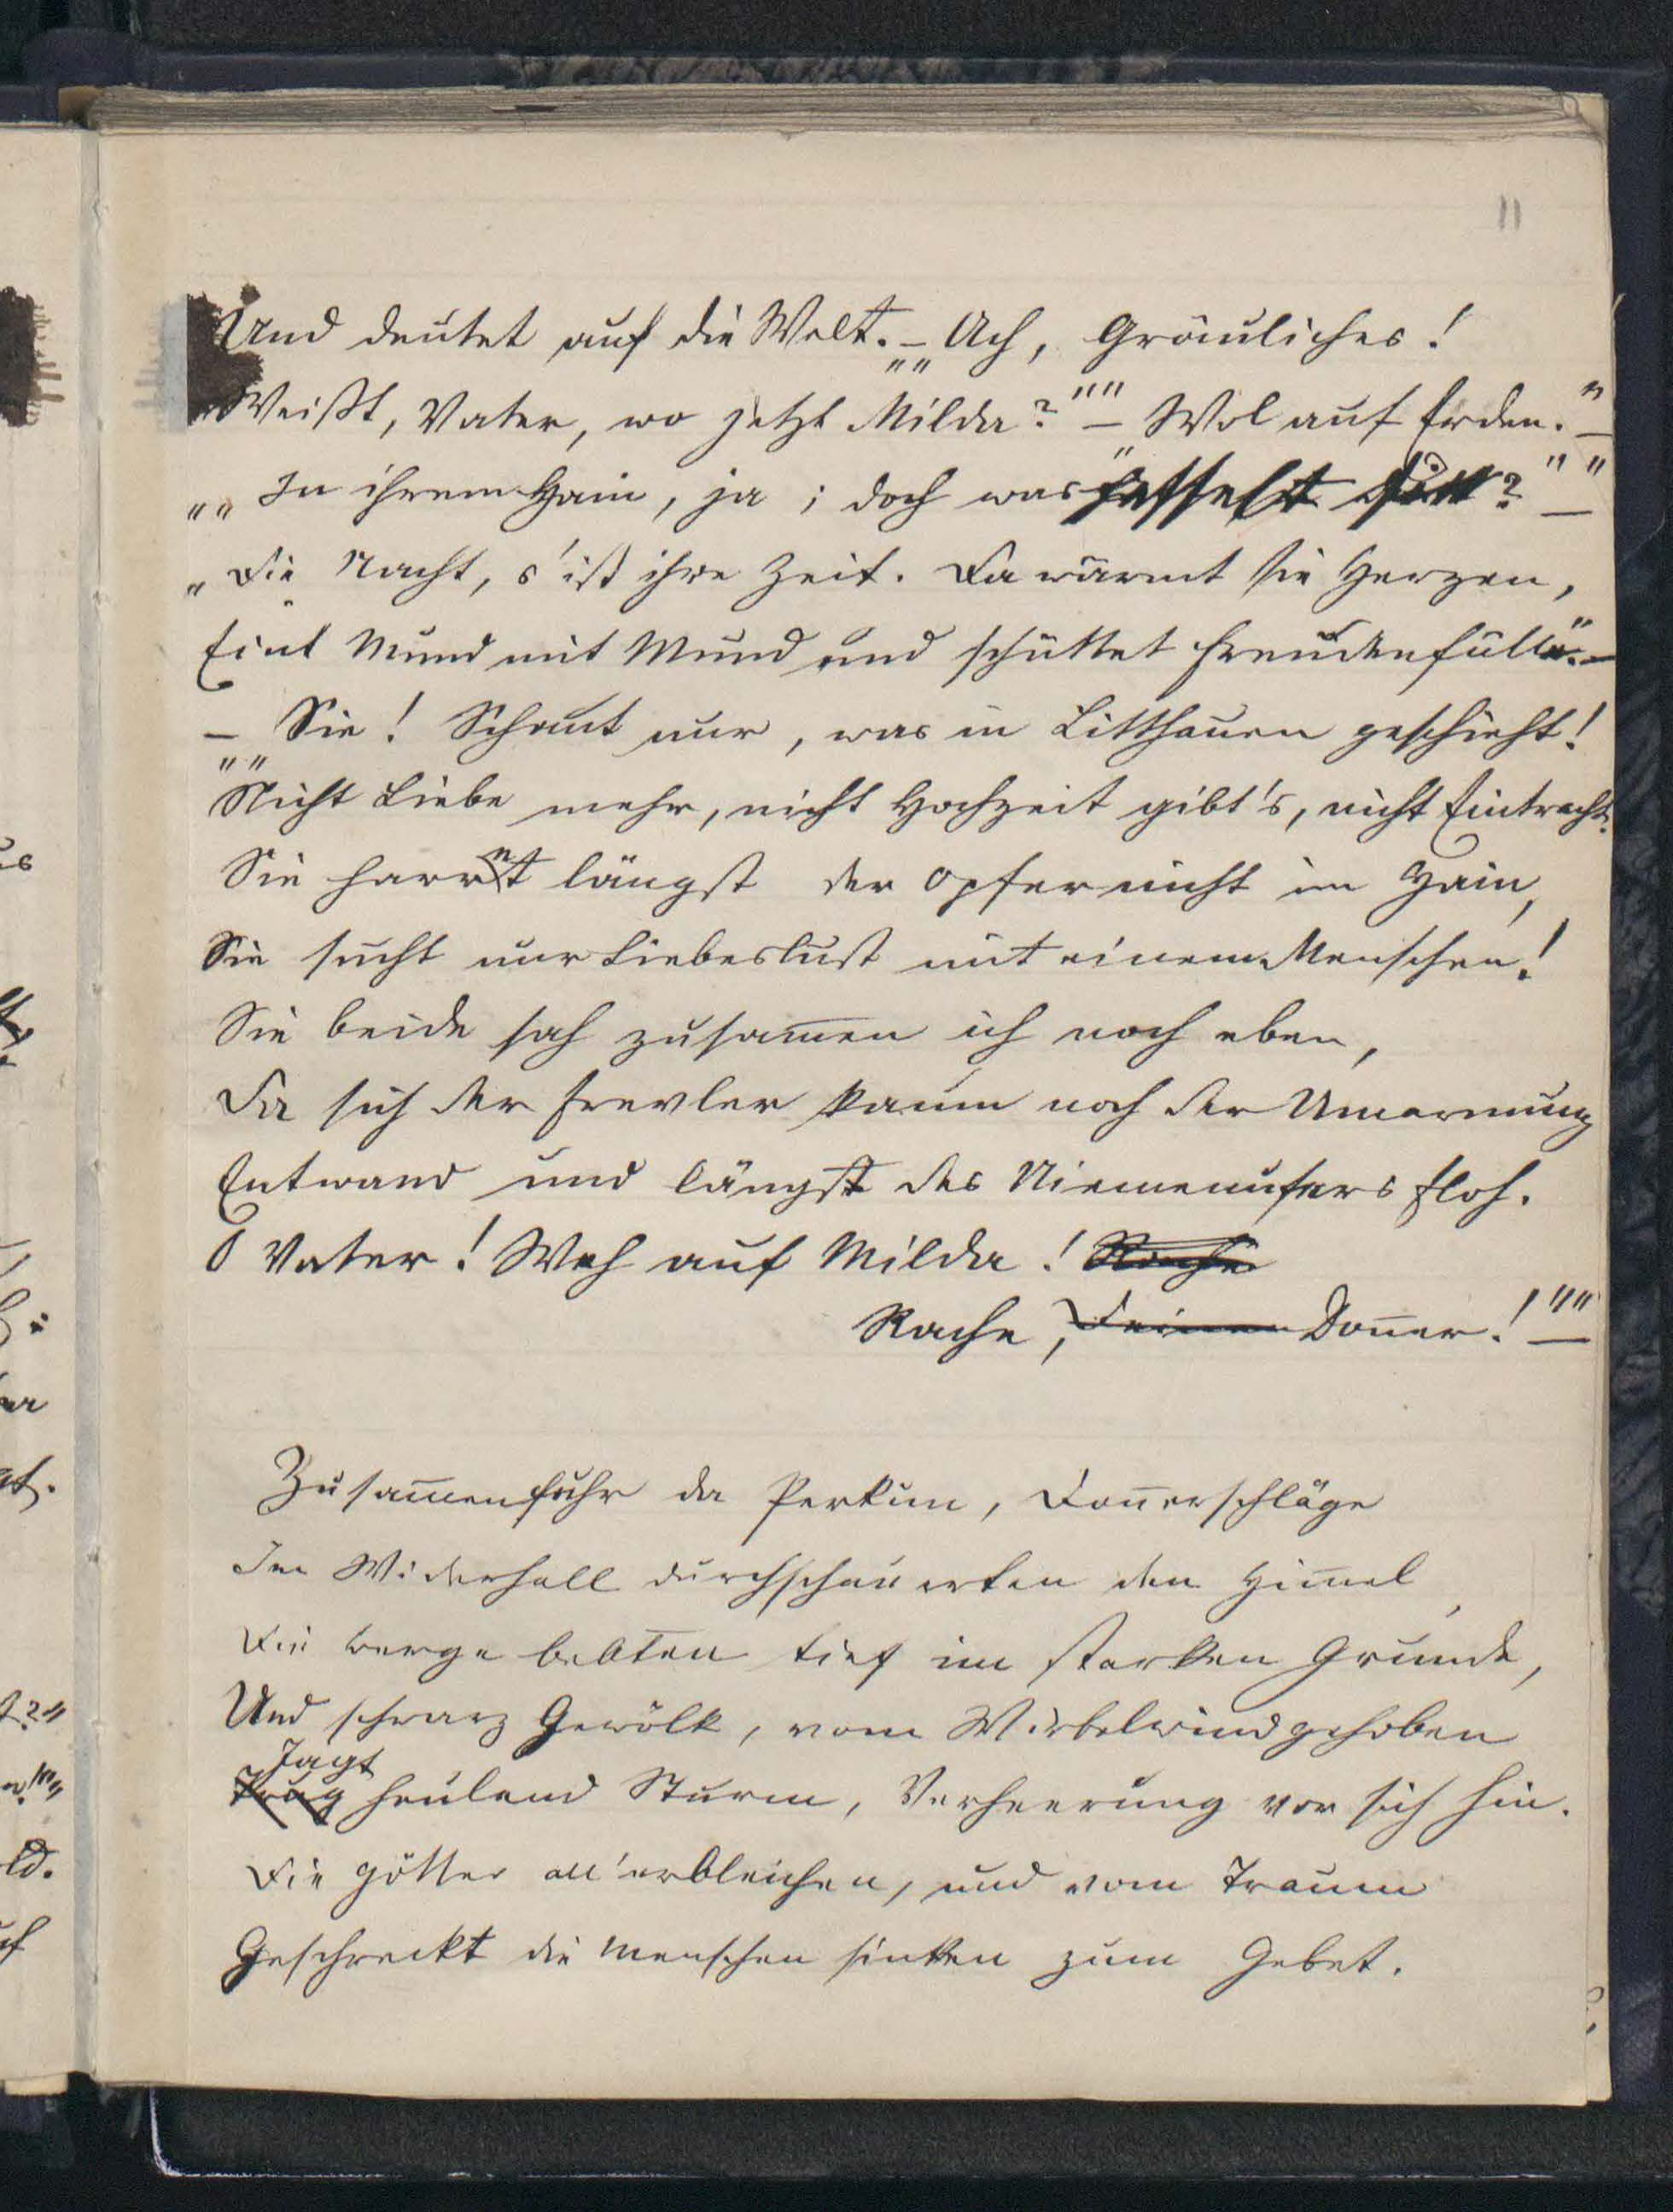 11
Und deutet auf die Welt. – „„Ach, Gräuliches!
Weißt, Vater, wo jetzt Milda?"" – „Wol auf Erden." –
„„In ihrem Hain, ja; doch was fesselt sie?"" –
„Die Nacht, s'ist ihre Zeit. Da wärmt sie Herzen,
Eint Mund mit Mund und schüttet Freudenfülle." –
– „„Sie! Schaut nur, was in Litthauen geschieht!
Nicht Liebe mehr, nicht Hochzeit gibt's, nicht Eintracht.
Sie harret längst der Opfer nicht im Hain,
Sie sucht nur Liebeslust mit einem Menschen!
Sie beide sah zusam̄en ich noch eben,
Da sich der Frevler kaum noch der Umarmung
Entwand und längst des Niemenufers floh.
O Vater! Weh auf Milda! Rache
Rache, Deinen Don̄er!"" –
Zusam̄enfuhr da Perkun, Don̄erschläge
Im Widerhall durchschauerten den Him̄el,
Die Berge bebten tief im starken Grunde,
Und schwarz Gewölk, vom Wirbelwind gehoben
Jagt
Trug heulend Sturm, Verheerung vor sich hin.
Die Götter all' erbleichen, und vom Traum
Geschreckt die Menschen sinken zum Gebet.